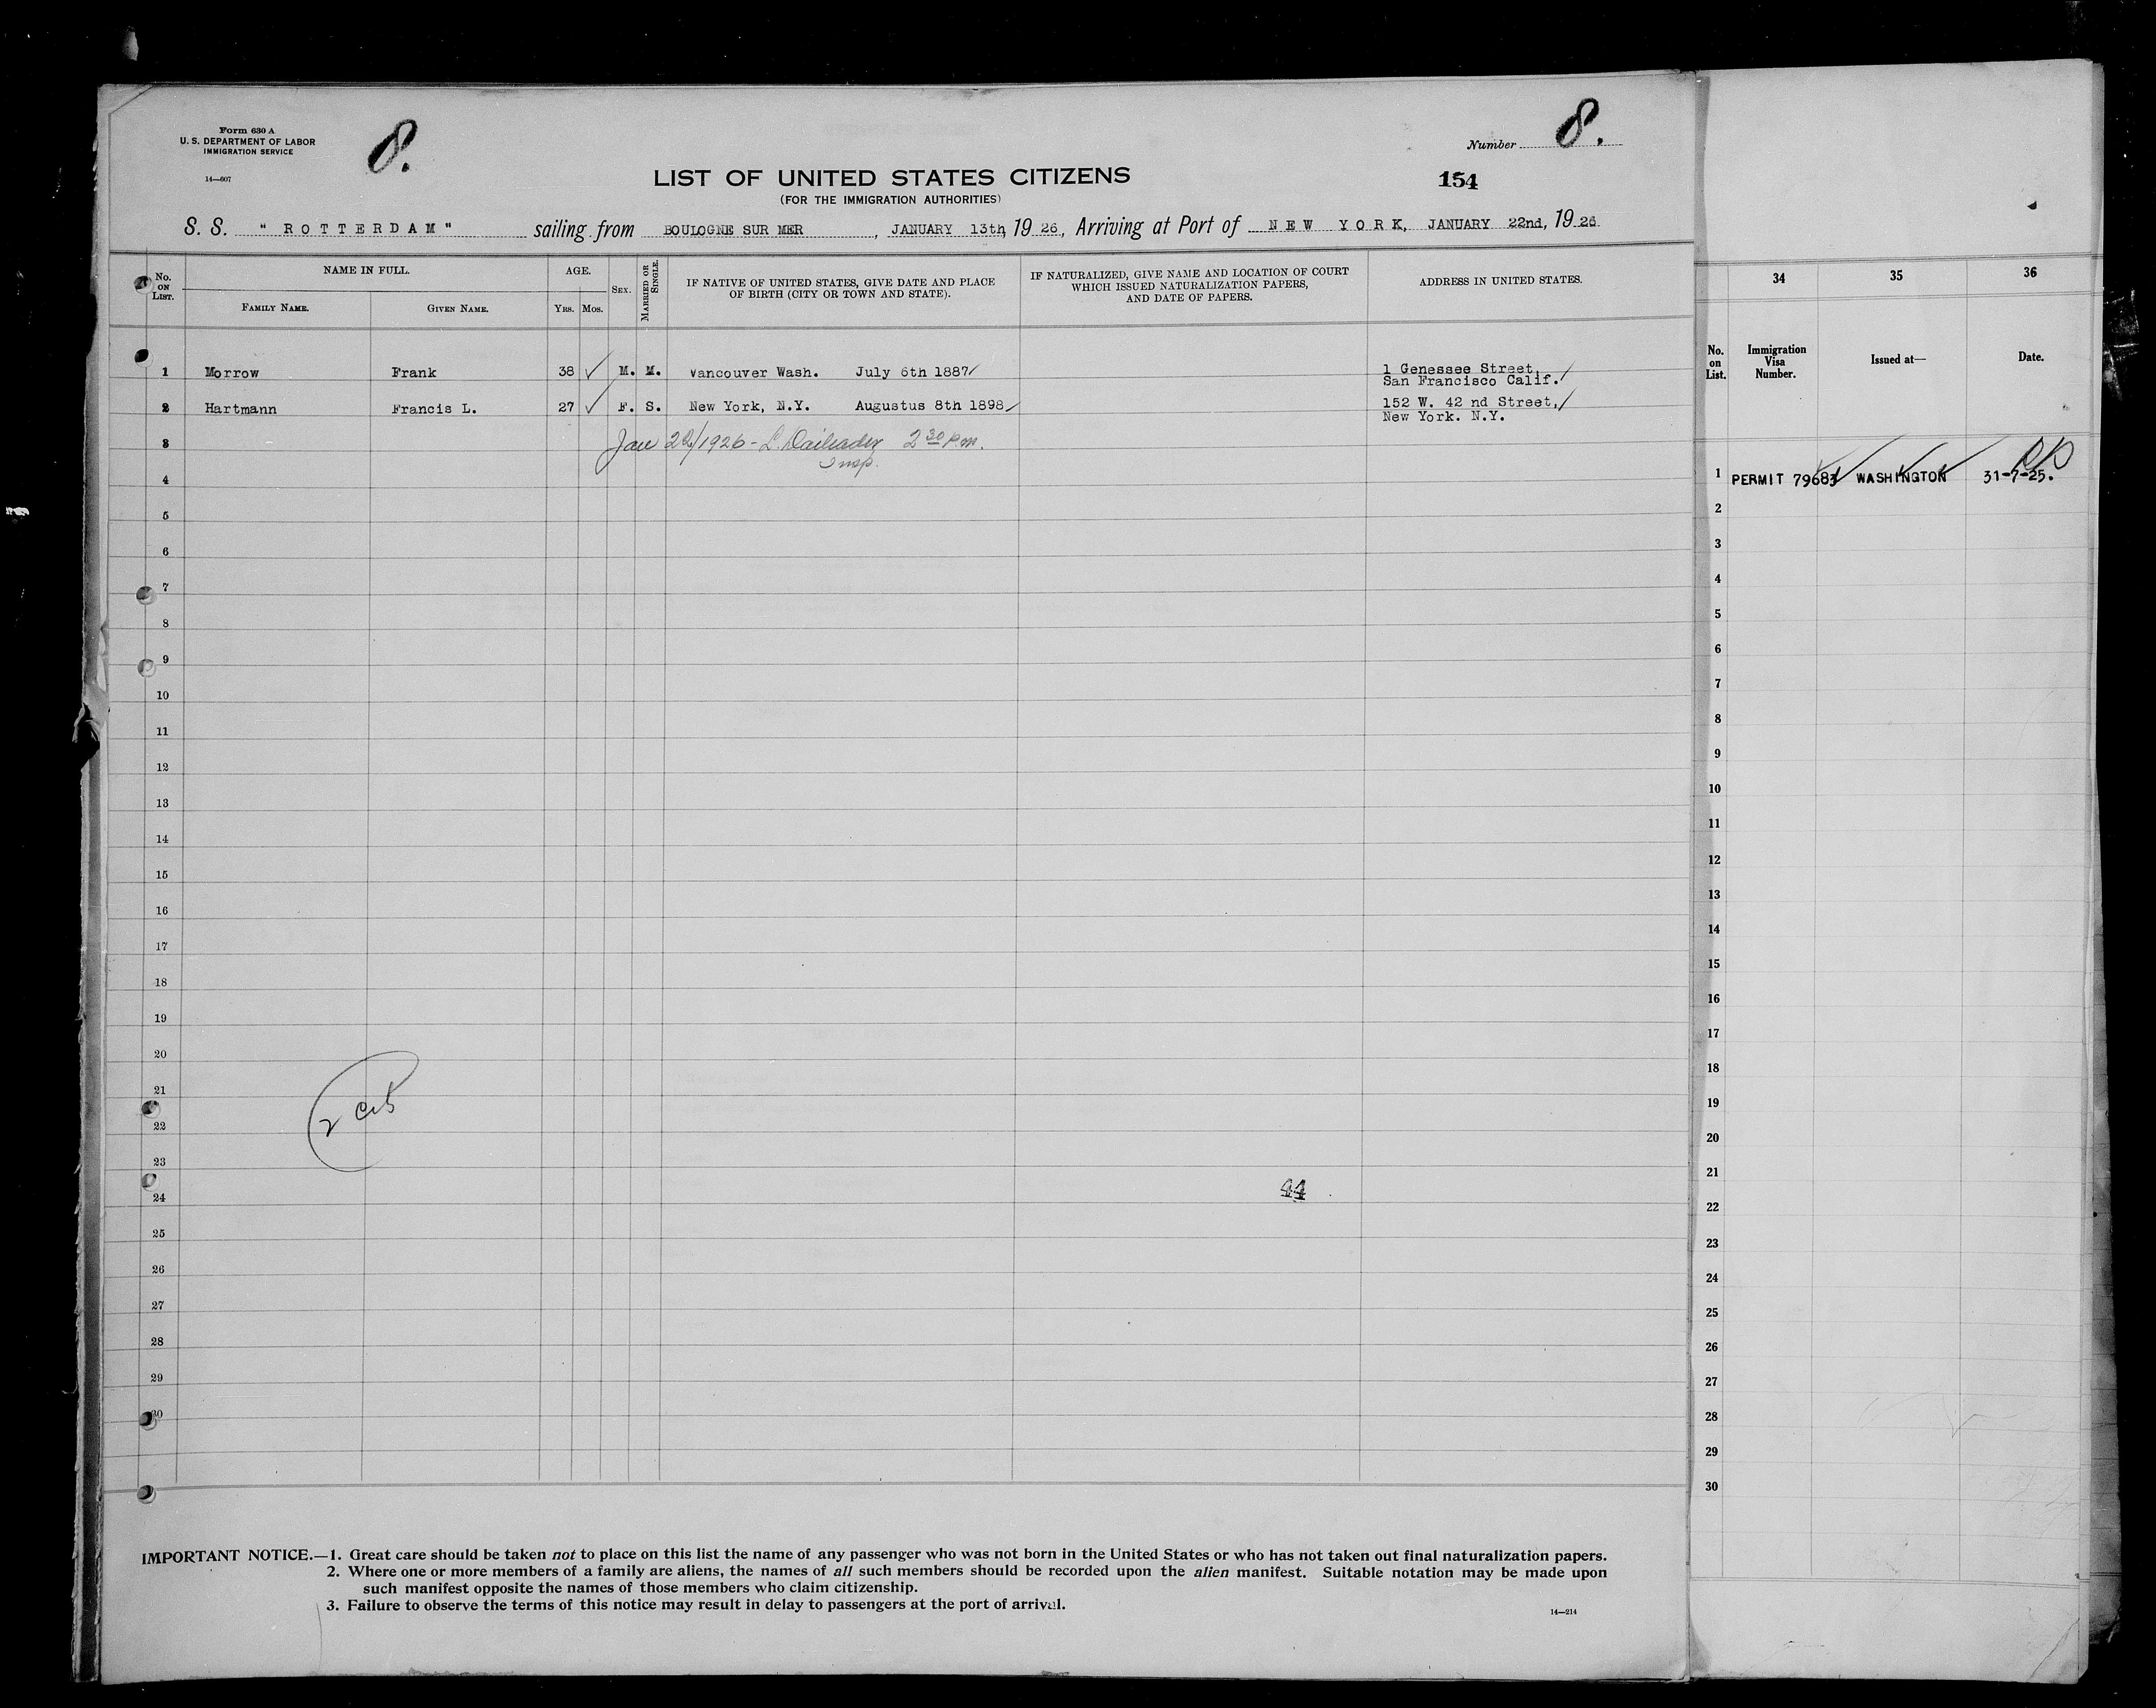 Form 630 A
U. S. DEPARTMENT OF LABOR
IMMIGRATION SERVICE
14—607
8.
Number 8.
LIST OF UNITED STATES CITIZENS
154
(FOR THE IMMIGRATION AUTHORITIES)
S. S. " ROTTERDAM " sailing from BOULOGNE SUR MER, JANUARY 13th, 19 26, Arriving at Port of NEW YORK, JANUARY 22nd, 19 26
No. ON LIST.
NAME IN FULL.
FAMILY NAME.
GIVEN NAME.
AGE.
YRS.
MOS.
SEX.
MARRIED OR SINGLE.
IF NATIVE OF UNITED STATES, GIVE DATE AND PLACE
OF BIRTH (CITY OR TOWN AND STATE).
IF NATURALIZED, GIVE NAME AND LOCATION OF COURT
WHICH ISSUED NATURALIZATION PAPERS,
AND DATE OF PAPERS.
ADDRESS IN UNITED STATES.
1 Morrow Frank 38 ✓ M. M. Vancouver Wash. July 6th 1887/ 1 Genessee Street,
San Francisco Calif. /
2 Hartmann Francis L. 27 ✓ F. S. New York, N.Y. Augustus 8th 1898/ 152 W. 42 nd Street, /
New York. N.Y.
3 Jan 22/1926 - L. 2 30 p.m.
Insp.
4
5
6
7
8
9
10
11
12
13
14
15
16
17
18
19
20
21
22
23
24
25
26
27
28
29
30
2
44
IMPORTANT NOTICE.—1. Great care should be taken not to place on this list the name of any passenger who was not born in the United States or who has not taken out final naturalization papers.
2. Where one or more members of a family are aliens, the names of all such members should be recorded upon the alien manifest. Suitable notation may be made upon
such manifest opposite the names of those members who claim citizenship.
3. Failure to observe the terms of this notice may result in delay to passengers at the port of arrival.
14—214
34
35
36
No. on List.
Immigration Visa Number.
Issued at—
Date.
1 PERMIT WASHINGTON 31-7-25.
2
3
4
5
6
7
8
9
10
11
12
13
14
15
16
17
18
19
20
21
22
23
24
25
26
27
28
29
30